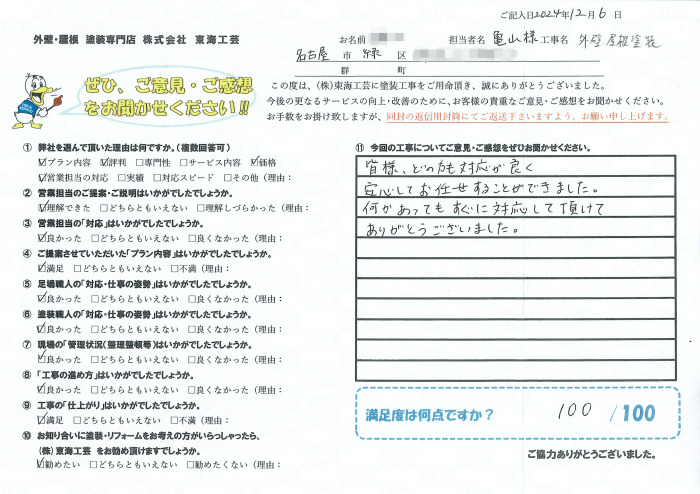 ご記入日2024年12月6日
外壁・屋根 塗装専門店 株式会社 東海工芸
お名前 担当者名 亀山様 工事名 外壁 屋根塗装
名古屋 市 緑 区
群 町
ぜひ、ご意見・ご感想
をお聞かせください!!
この度は、(株)東海工芸に塗装工事をご用命頂き、誠にありがとうございました。
今後の更なるサービスの向上・改善のために、お客様の貴重なご意見・ご感想をお聞かせください。
お手数をお掛け致しますが、同封の返信用封筒にてご返送下さいますよう、お願い申し上げます。
① 弊社を選んで頂いた理由は何ですか。(複数回答可)
☑プラン内容 ☑評判 □専門性 □サービス内容 ☑価格
☑営業担当の対応 □実績 □対応スピード □その他(理由:
② 営業担当のご提案・ご説明はいかがでしたでしょうか。
☑理解できた □どちらともいえない □理解しづらかった(理由:
③ 営業担当の「対応」はいかがでしたでしょうか。
☑良かった □どちらともいえない □良くなかった(理由:
④ ご提案させていただいた「プラン内容」はいかがでしたでしょうか。
☑満足 □どちらともいえない □不満(理由:
⑤ 足場職人の「対応・仕事の姿勢」はいかがでしたでしょうか。
☑良かった □どちらともいえない □良くなかった(理由:
⑥ 塗装職人の「対応・仕事の姿勢」はいかがでしたでしょうか。
☑良かった □どちらともいえない □良くなかった(理由:
⑦ 現場の「管理状況(整理整頓等)はいかがでしたでしょうか。
☑良かった □どちらともいえない □良くなかった(理由:
⑧ 「工事の進め方」はいかがでしたでしょうか。
☑良かった □どちらともいえない □良くなかった(理由:
⑨ 工事の「仕上がり」はいかがでしたでしょうか。
☑満足 □どちらともいえない □不満(理由:
⑩ お知り合いに塗装・リフォームをお考えの方がいらっしゃったら、
(株)東海工芸 をお勧め頂けますでしょうか。
☑勧めたい □どちらともいえない □勧めたくない(理由:
⑪ 今回の工事についてご意見・ご感想をぜひお聞かせください。
皆様、どの方も対応が良く
安心してお任せすることができました。
何かあってもすぐに対応して頂けて
ありがとうございました。
満足度は何点ですか? 100 /100
ご協力ありがとうございました。